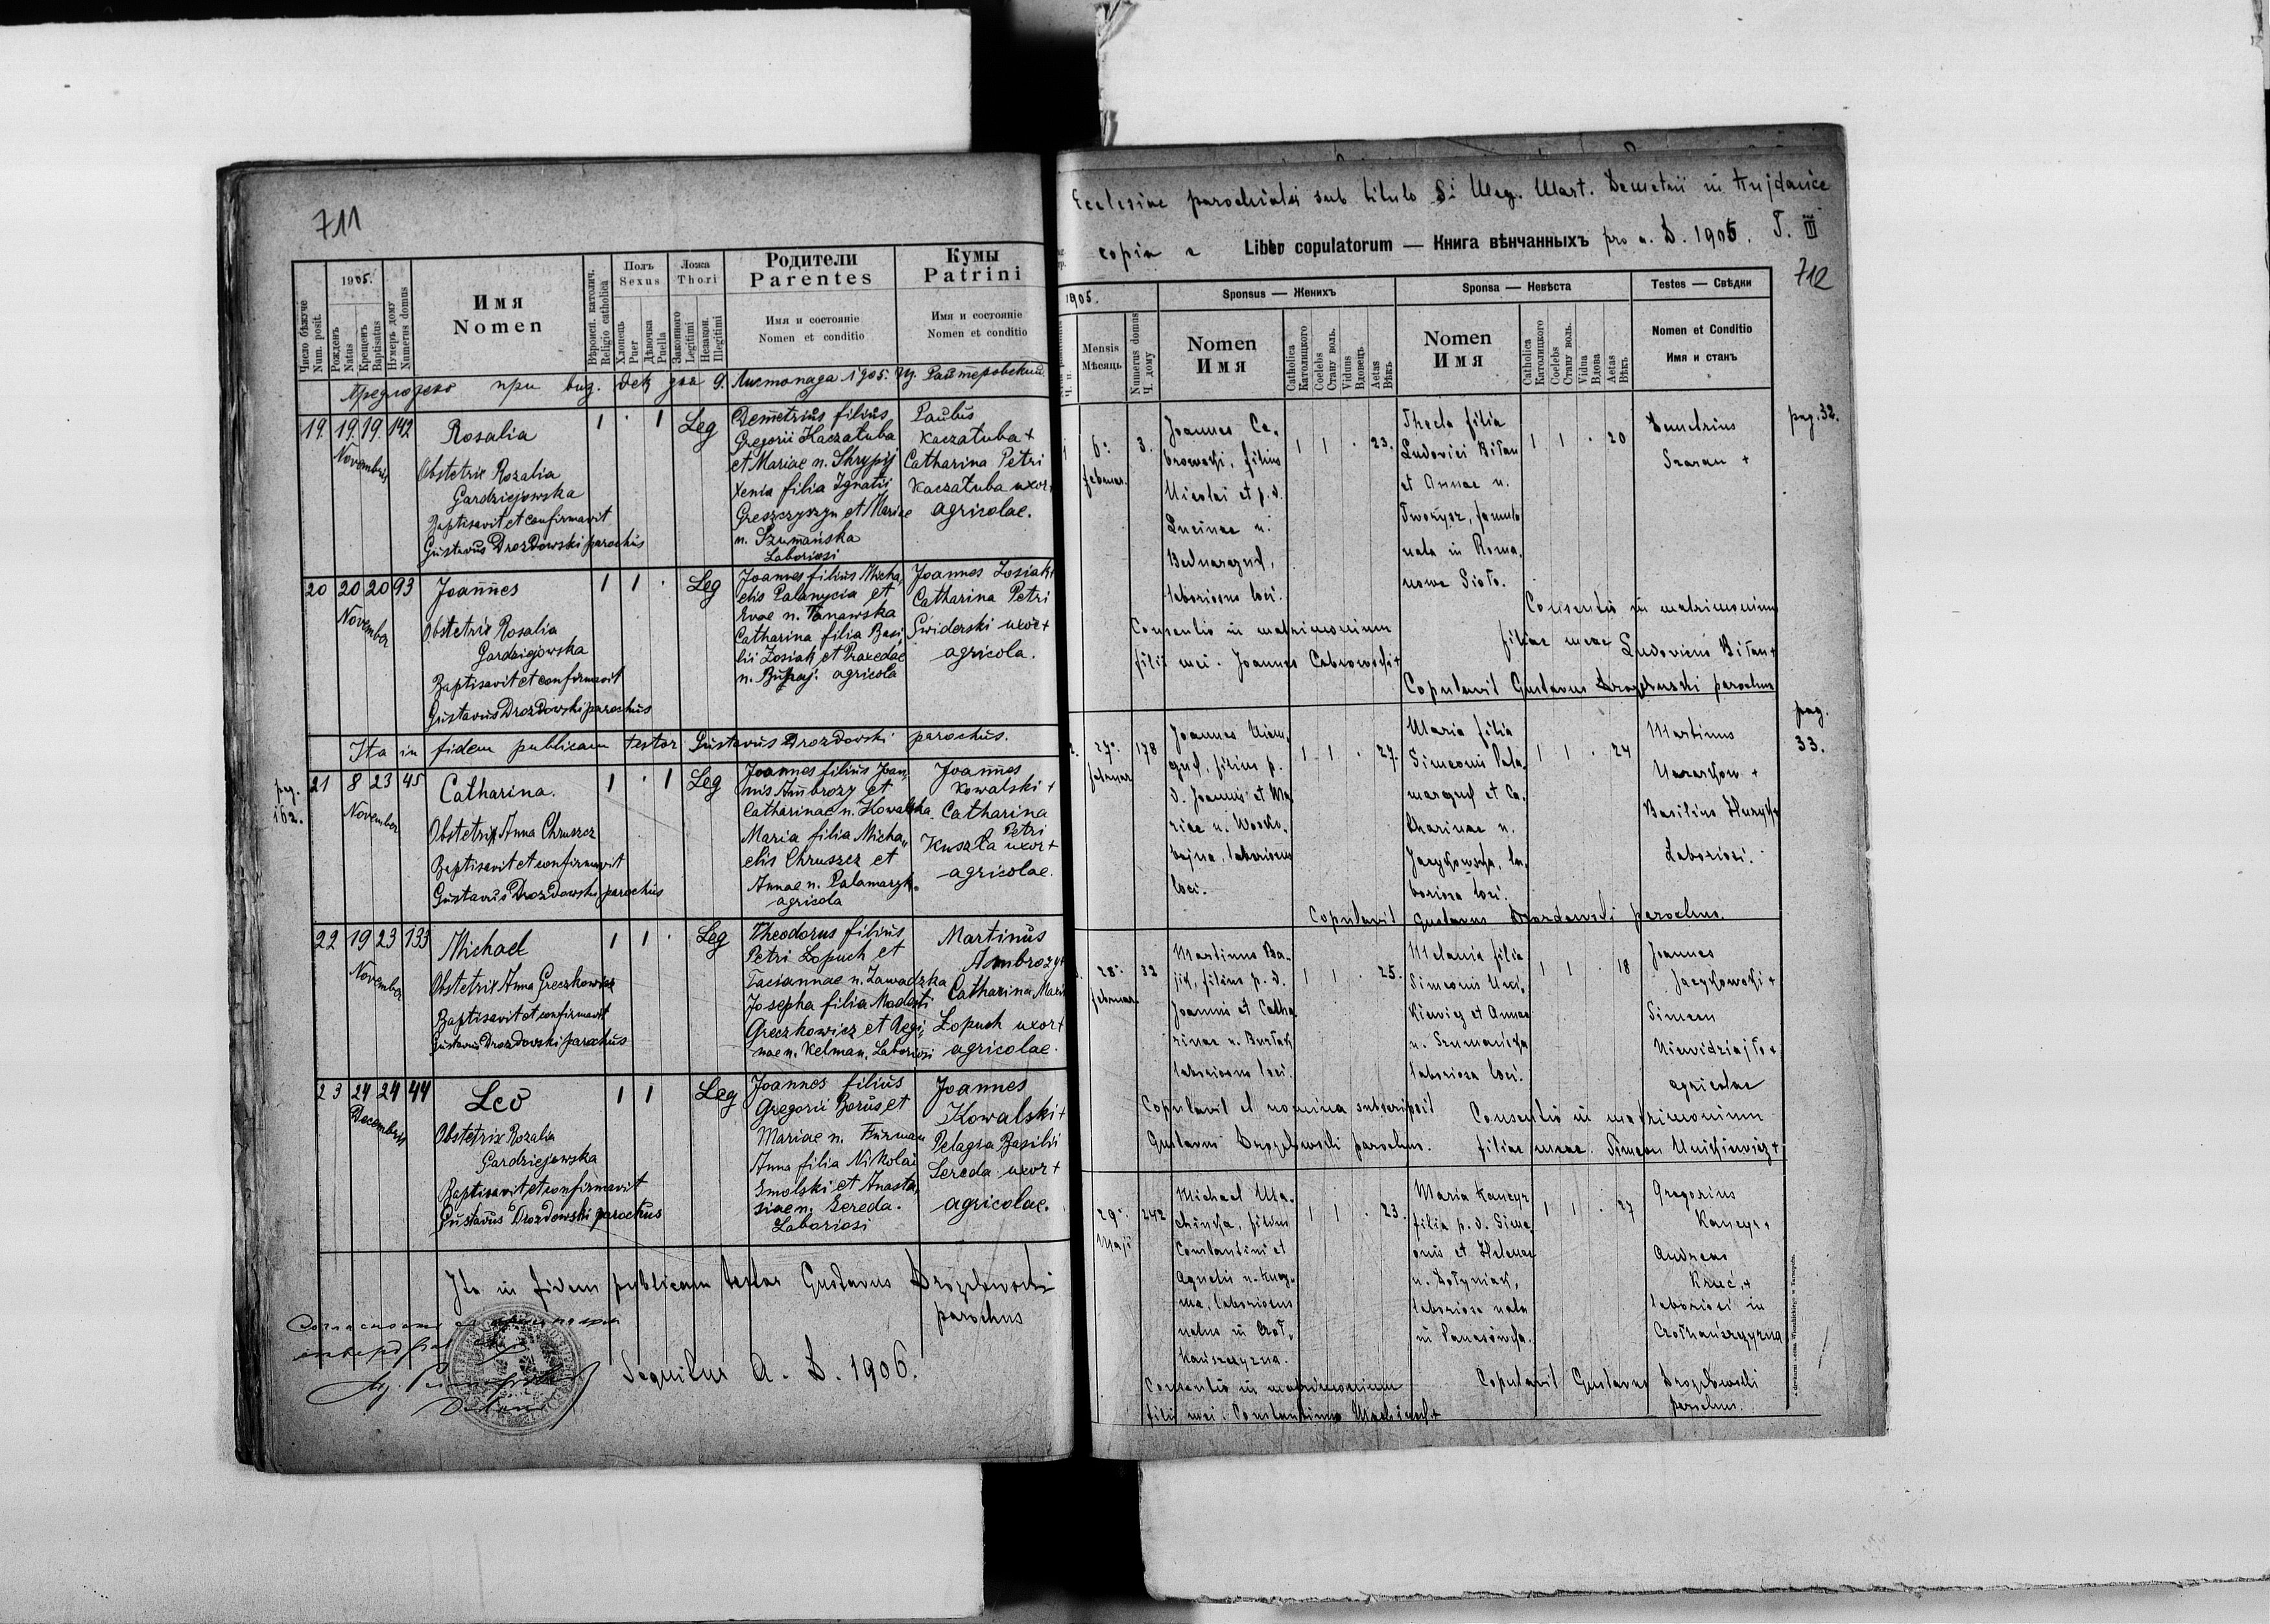 711
Число бѣжуче
Num. posit.
1905.
Рожденъ
Natus
Крещенъ
Baptisatus
Нумеръ дому
Numerus domus
Имя
Nomen
Вѣроисп. католич.
Religio catholica
Полъ
Sexus
Хлопець
Puer
Дѣвочка
Puella
Ложа
Thori
Законного
Legitimi
Незакон.
Illegitimi
Родители
Parentes
Имя и состояніе
Nomen et conditio
Кумы
Patrini
Имя и состояніе
Nomen et conditio
при виз. дек дня 9. Листопада 1905.
19. 19. 19. 142 Rosalia 1 · 1 Leg
Novembris
Obstetrix Rozalia
Gardziejowska
Baptisavit et confirmavit
Gustavus Drozdowski parochus
Demetrius filius
Gregorii Kaczatuba
et Mariae n. Skrypij
Xenia filia Ignatii
Greszczyszyn et Mariae
n. Szumańska
Laboriosi
Paulus
Kaczatuba +
Catharina Petri
Kaczatuba uxor
agricolae.
20 20 20 93 Joannes 1 1 · Leg
November
Obstetrix Rosalia
Gardzigowska
Baptisavit et confirmavit
Gustavus Drozdowski parochus
Joannes filius Micha,
elis Palanycia et
Evae n. Panawska
Catharina filia Basi,
lii Zosiak et Praxedae
n. agricola
Joannes Zosiak
Catharina Petri
Świderski uxor +
agricola.
Ita in fidem publicam testor Gustavus Drozdowski parochus.
pag.
162.
21 8 23 45 Catharina. 1 · 1 Leg
November
Obstetrix Anna Chruszcz
Baptisavit et confirmavit
Gustavus Drozdowski parochus
Joannes filius Joan,
nis Ambrozy et
Catharinae n. Kowalska
Maria filia Micha,
elis Chruszcz et
Annae n. Palamarzyk.
agricola
Joannes
Kowalski +
Catharina
Petri
Kuszła uxor +
agricolae.
22 19 23 133 Michael 1 1 · Leg
November
Obstetrix Anna Greczkowicz
Baptisavit et confirmavit
Gustavus Drozdowski parochus
Theodorus filius
Petri Łopuch et
Taciannae n. Zawadzka
Josepha filia Modesti
Greczkowicz et Regi,
nae n. Kelman. Laboriosi
Martinus
Ambrozy +
Catharina
Łopuch uxor +
agricolae.
23 24 24 44 Leo 1 1 Leg
Decembris
Obstetrix Rozalia
Gardziejowska
Baptisavit et confirmavit
Gustavus Drozdowski parochus
Joannes filius
Gregorii Borus et
Mariae n. Furman
Anna filia Nikolai
Smolski et Anasta,
siae n. Sereda.
Laboriosi
Joannes
Kowalski +
Pelagia Basilii
Sereda uxor +
agricolae.
Ita in fidem publicam testor Gustavus Drozdowski
parochus
Sequitur A. D. 1906.
Ecclesiae parochialis sub titulo Si Meg. Mart. Demetrii in
copia
Liber copulatorum — Книга вѣнчанныхъ pro a. D. 1905. T. III
712
1905.
Mensis
Мѣсяць
Numerus domus
Ч. дому
Sponsus — Женихъ
Nomen
Имя
Catholica
Католицкого
Coelebs
Стану воль.
Viduus
Вдовець
Aetas
Вѣкъ
Sponsa — Невѣста
Nomen
Имя
Catholica
Католицкого
Coelebs
Стану воль.
Vidua
Вдова
Aetas
Вѣкъ
Testes — Свѣдки
Nomen et Conditio
Имя и станъ
6. 3.
februar.
Joannes Ce,
browski, filius
Nicolai et p. d.
Lucinae n.
Bednarczuk,
laboriosus loci.
1 1 · 23.
Thecla filia
Ludovici Biłan
et Annae n.
Tworysz, famula
nata in Roma,
nowe Sioło.
1 1 · 20
Demetrius
Szaran +
pag. 32.
Consentio in matrimonium
filii mei. Joannes Cebrowski +
Consentio in matrimonium
filiae meae Ludovicus Biłan +
Copulavit Gustavus Drozdowski parochus
2. 27. 178
februar
1 1 · 27.
Maria filia
Simeonis Pala,
marczuk et Ca,
tharinae n.
Jaczkowska, la,
boriosa loci.
1 1 · 24
Martinus
+
Basilius
Laboriosi.
pag.
33.
Copulavit Gustavus Drozdowski parochus.
28. 32
februar
Martinus Ba,
jik, filius p. d.
Joannis et Catha
rinae n. Burłak
laboriosus loci.
1 1 · 25.
Melania filia
Simeonis Uni,
kiewicz et Annae
n. Szumańska
laboriosa loci.
1 1 · 18
Joannes
Jaczkowski +
Simeon
Niewidziajło +
agricolae
Copulavit et nomina subscripsit
Gustavus Drozdowski parochus.
Consentio in matrimonium
filiae meae. Simeon Unikiewicz +
29. 242
Maji
Michael Ma,
chińka, filius
Constantini et
laboriosus
natus in Czoł,
hańszczyzna.
1 1 · 23.
Maria Kancyr
filia p. d. Sime,
onis et Helenae
n. Dołyniak,
laboriosa nata
in Panasówka.
1 1 · 27
Gregorius
Kancyr +
Andreas
Kruć, +
laboriosi in
Czołhańszczyzna
Consentio in matrimonium
filii mei. Constantinus
Copulavit Gustavus Drozdowski
parochus.